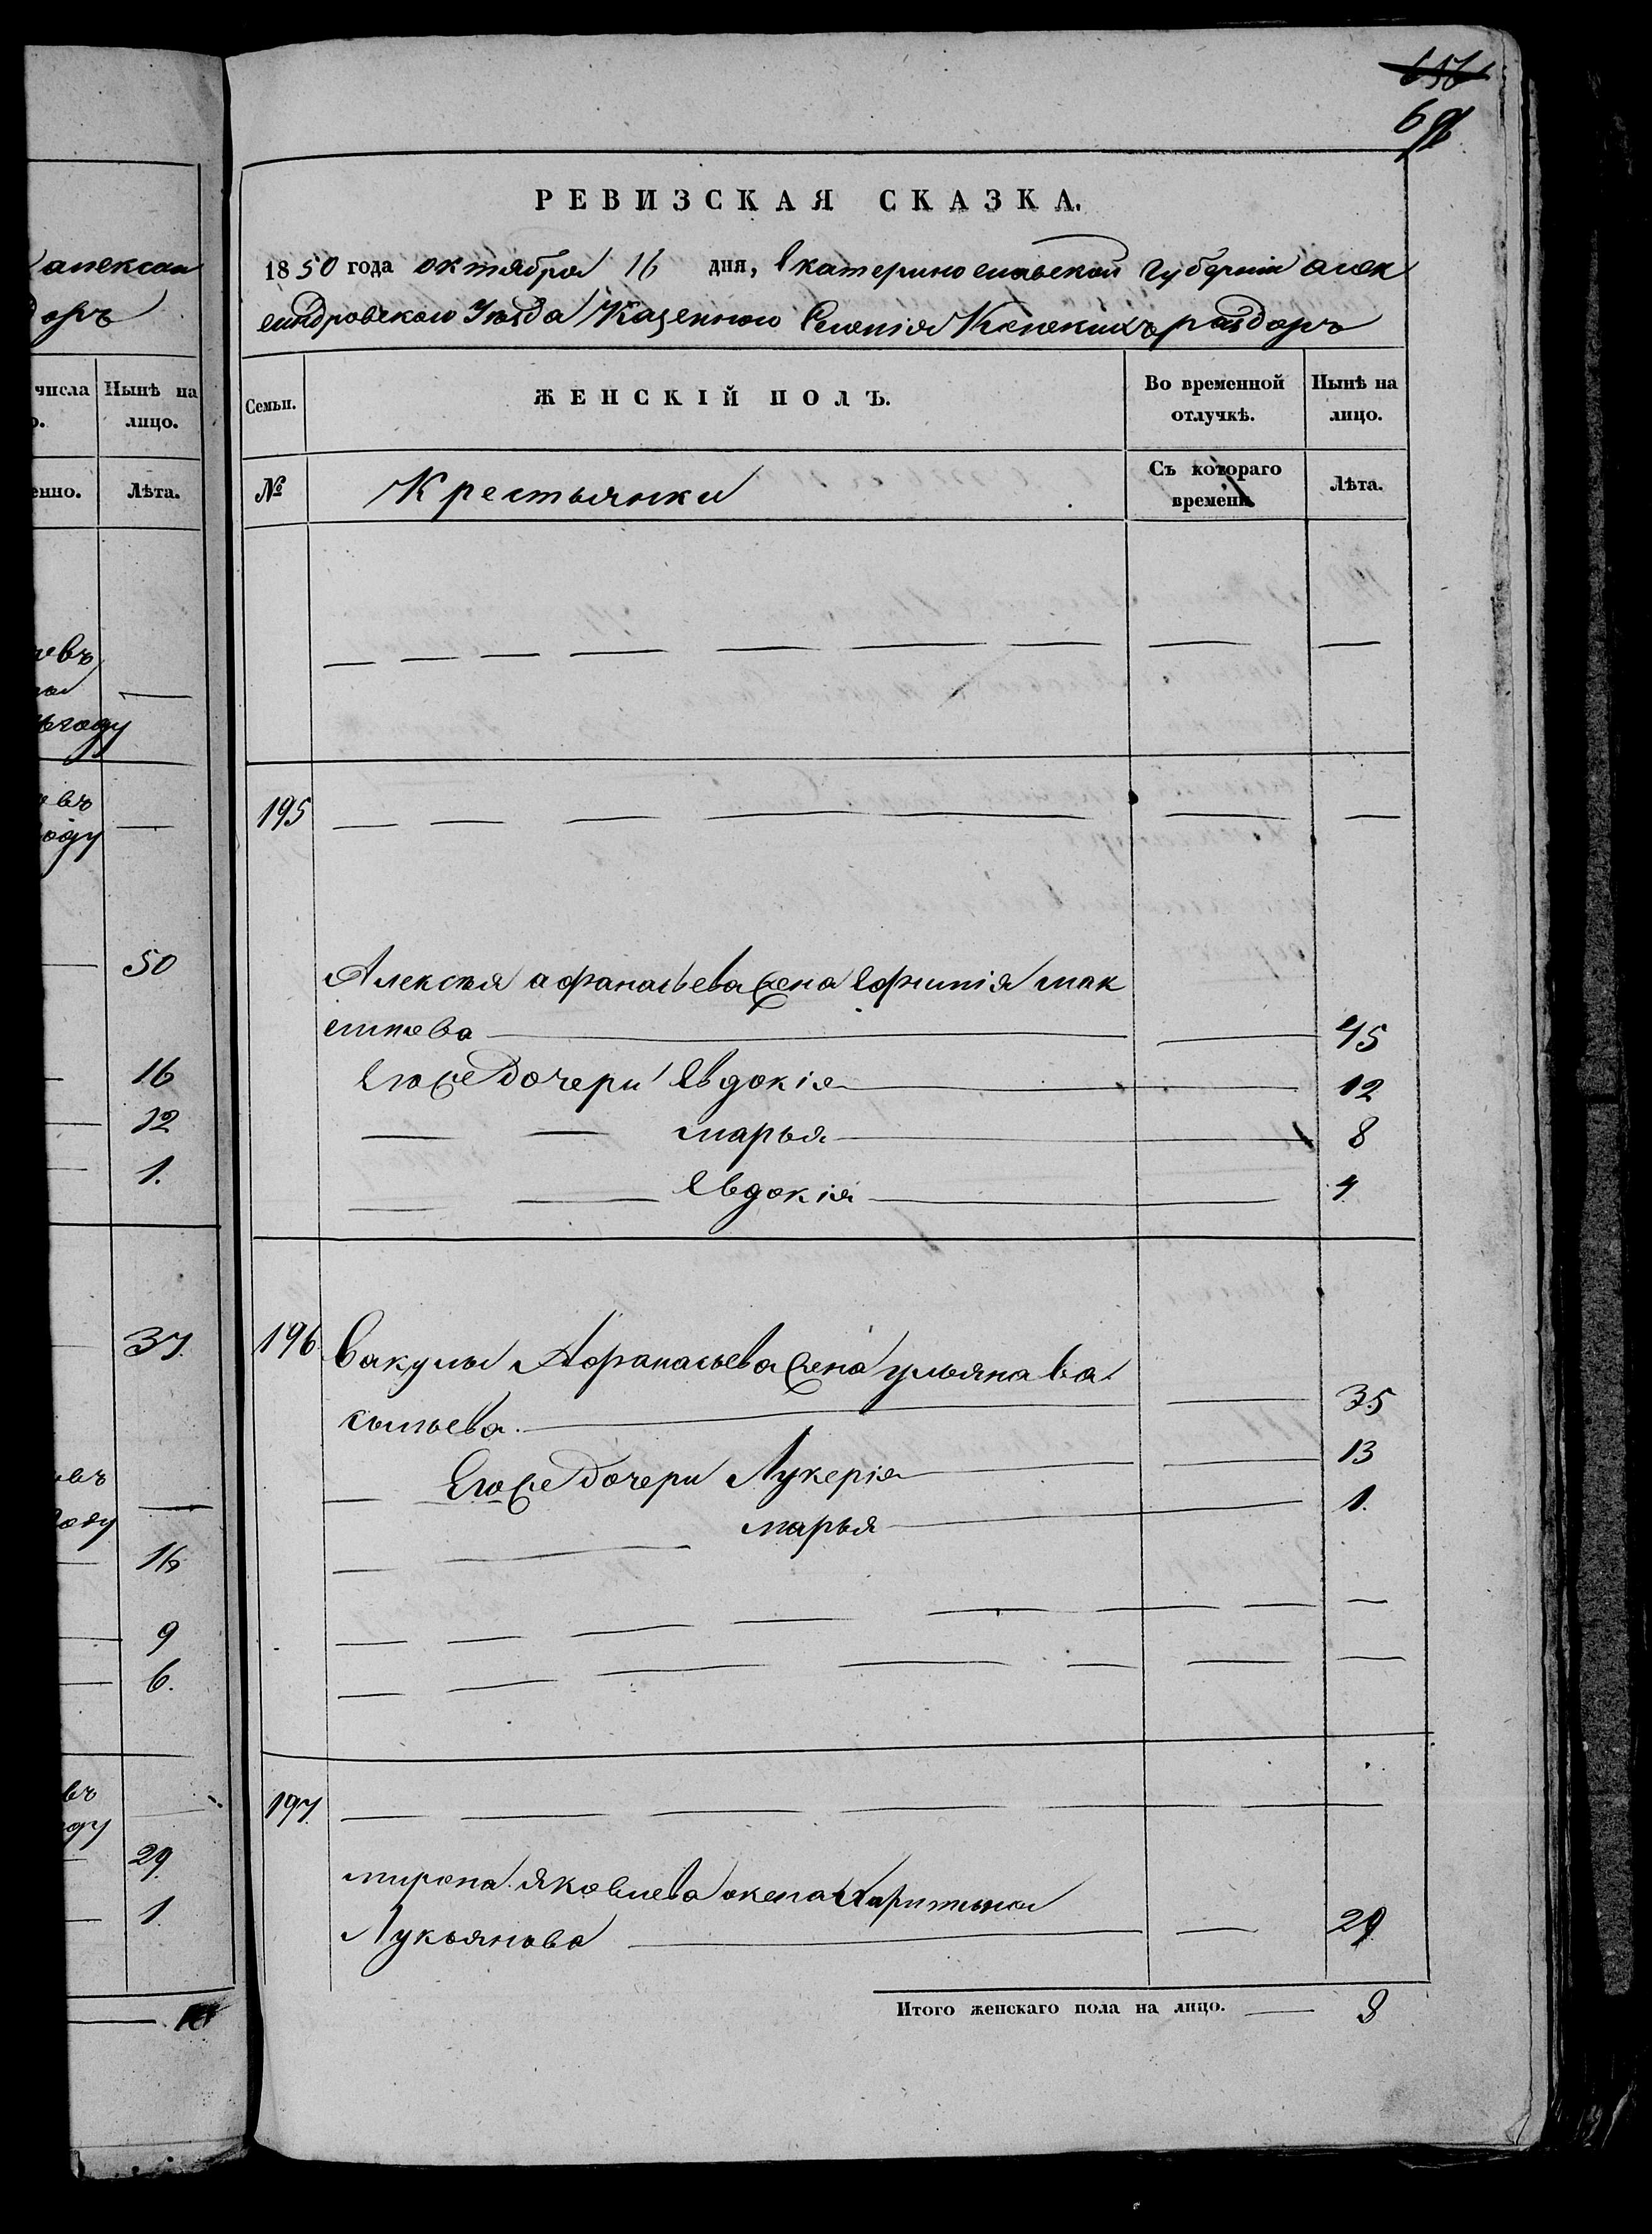 656
РЕВИЗСКАЯ СКАЗКА.
1850 года октября 16 дня, Екатеринославской Губернии Алек
сандровского Уѣзда Казенного Селенія Конскихъ раздоръ
Семьи. ЖЕНСКІЙ ПОЛЪ. Во временной отлучкѣ. Нынѣ на лицо.
№ Крестьянки Съ котораго времени. Лѣта.
195
Алексѣя афанасьева жена Ефимія мак
симова 45
Его же дочери Евдокія 12
марья 8
Евдокія 4
196 Вакулы Афанасьева жена ульяна ва
сильева 35
Его же дочери Лукерія 13
марья 1.
197
мирона яковлева жена Харитына
Лукьянова 29
Итого женскаго пола на лицо. 8
алексан
доръ
числа Нынѣ на
лицо.
енно. Лѣта.
евъ
году
въ
году
50
16
12
1.
37.
евъ
году
16
9
6.
въ
оду
29.
1.
10